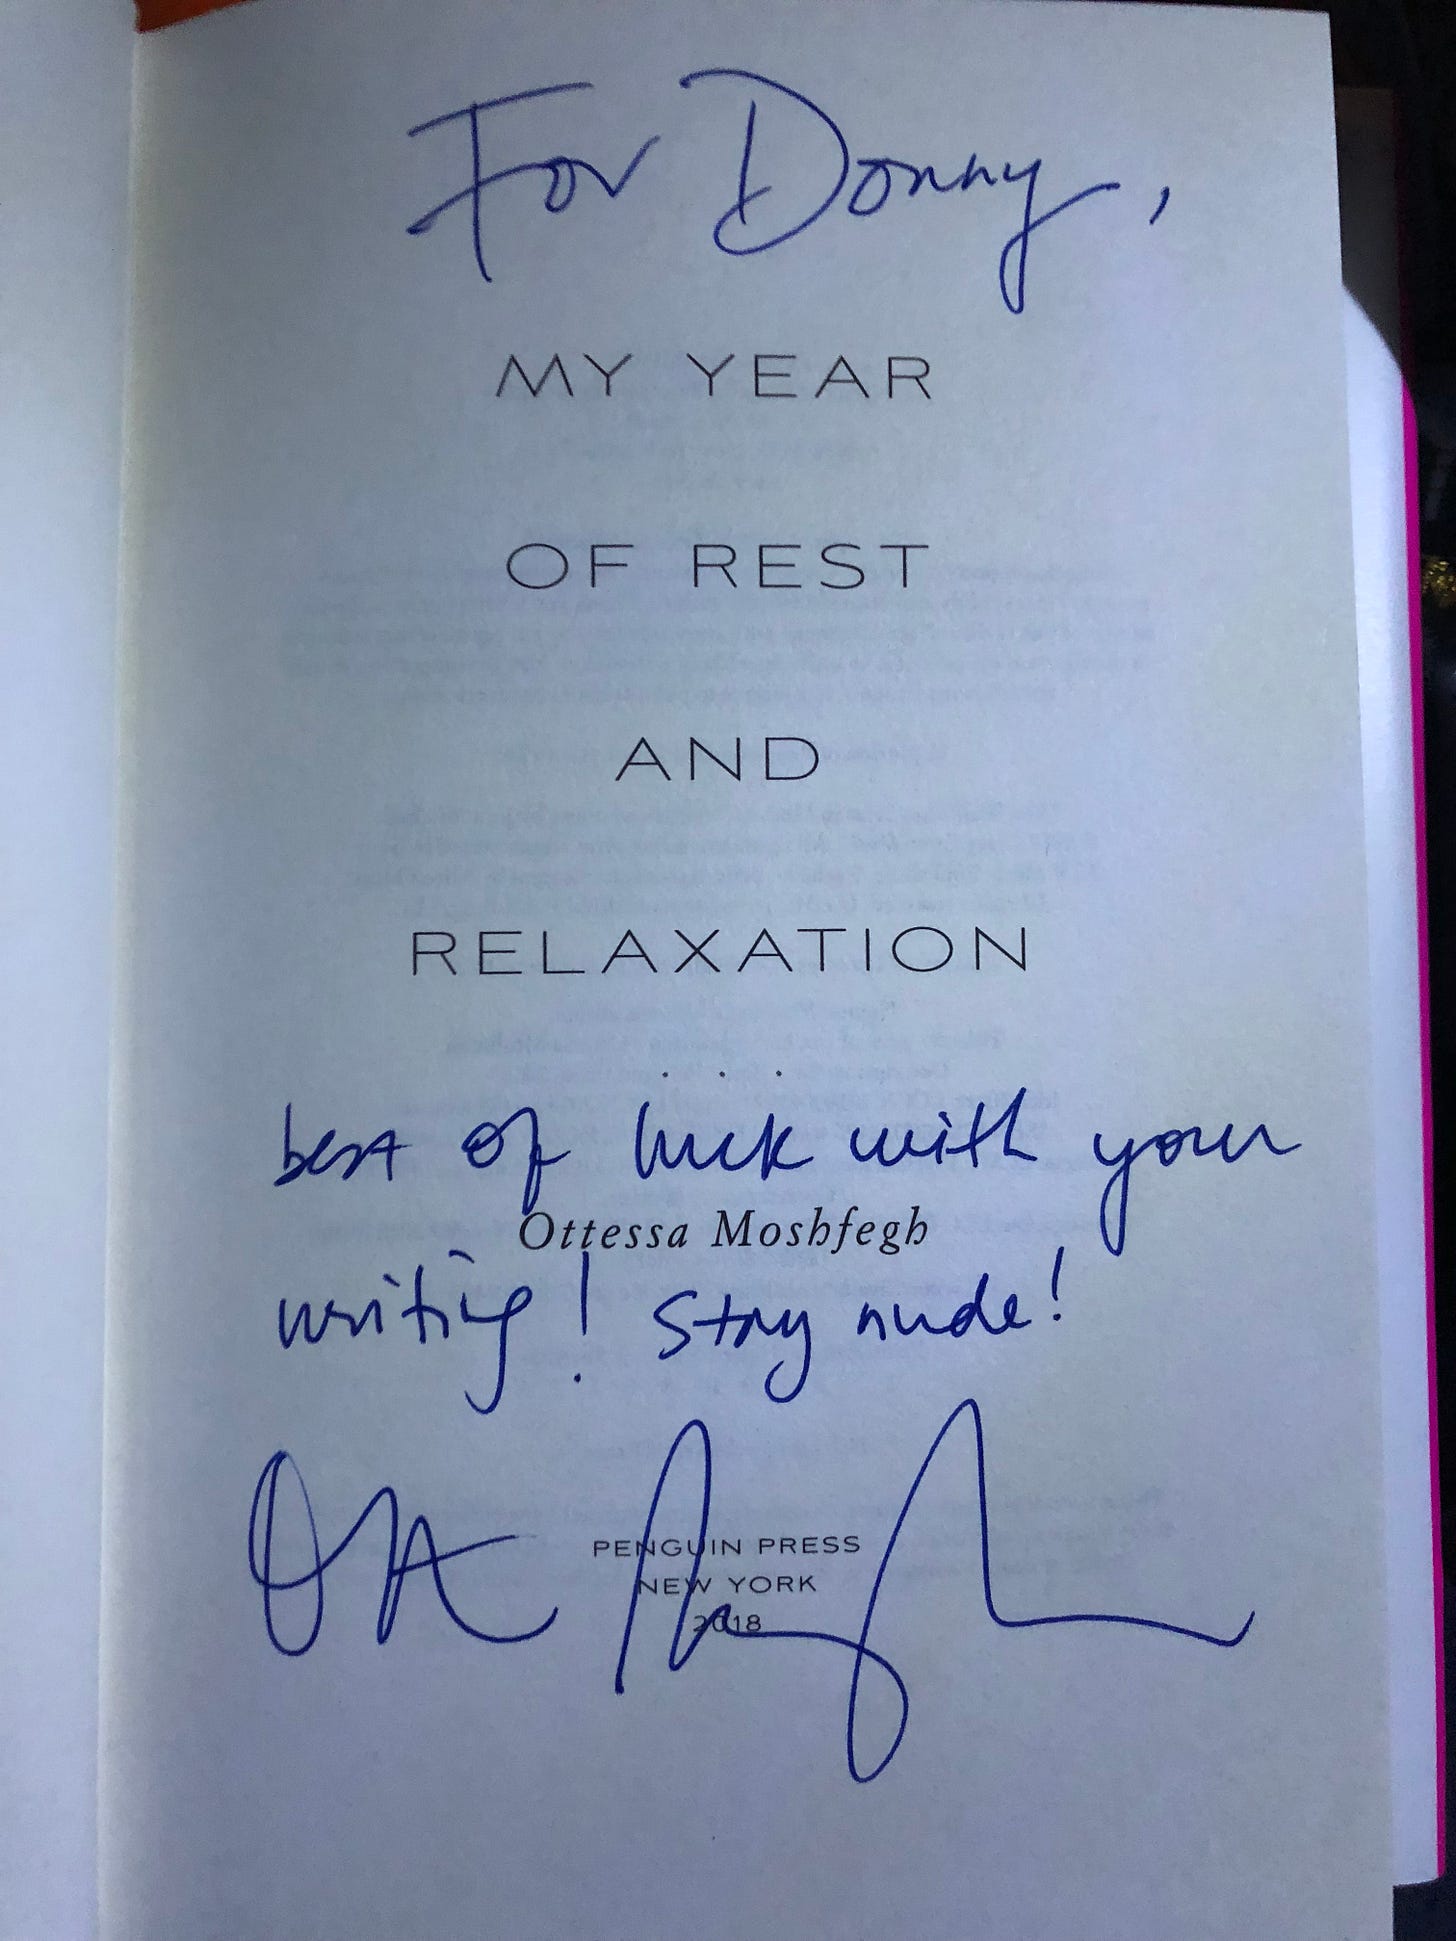 For Donny,
MY YEAR
OF REST
AND
RELAXATION
. . .
best of luck with your
Ottessa Moshfegh
writing! Stay nude!
PENGUIN PRESS
NEW YORK
2018